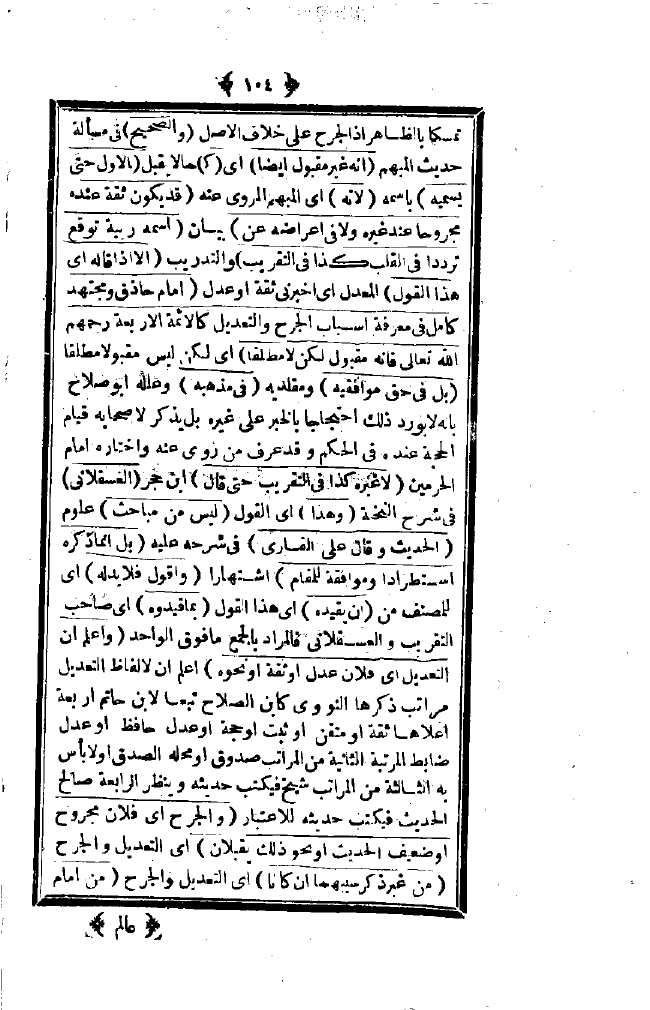 ﴿ ١٠٤ ﴾
تمسكا بالظاهر اذ الجرح على خلاف الاصل ( والصحيح ) فى مسألة
حديث المبهم ( انه غير مقبول ايضا ) اى ( كما ) لا يقبل ( الاول حتى
يسميه ) باسمه ( لانه ) اى المبهم المروى عنه ( قد يكون ثقة عنده
مجروحا عند غيره ولا فى اعراضه عن ) بيان ( اسمه ريبة توقع
ترددا فى القلب كذا فى التقريب ) والتدريب ( الا اذا قاله اى
هذا القول ) المعدل اى اخبرنى ثقة او عدل ( امام حاذق ومجتهد
كامل فى معرفة اسباب الجرح والتعديل كالائمة الاربعة رحمهم
الله تعالى فانه مقبول لكن لا مطلقا ) اى لكن ليس مقبولا مطلقا
( بل فى حق موافقيه ) ومقلديه ( فى مذهبه ) وعلله ابو صلاح
بانه لا يورد ذلك احتجاجا بالخبر على غيره بل يذكر لاصحابه قيام
الحجة عنده فى الحكم وقد عرف من روى عنه واختاره امام
الحرمين ( لا غيره كذا فى التقريب حتى قال ) ابن حجر ( العسقلانى )
فى شرح النخبة ( وهذا ) اى القول ( ليس من مباحث ) علوم
( الحديث وقال على القارى ) فى شرحه عليه ( بل انما ذكره
استطرادا وموافقة للمقام ) اشتهارا ( واقول فلا بد له ) اى
للمصنف من ( ان يقيده ) اى هذا القول ( بما قيدوه ) اى صاحب
التقريب والعسقلانى فالمراد بالجمع ما فوق الواحد ( واعلم ان
التعديل اى فلان عدل او ثقة او نحوه ) اعلم ان لالفاظ التعديل
مراتب ذكرها النووى كابن الصلاح تبعا لابن حاتم اربعة
اعلاها ثقة او متقن او ثبت او حجة او عدل حافظ او عدل
ضابط المرتبة الثانية من المراتب صدوق او محله الصدق او لا بأس
به الثالثة من المراتب شيخ فيكتب حديثه وينظر الرابعة صالح
الحديث فيكتب حديثه للاعتبار ( والجرح اى فلان مجروح
او ضعيف الحديث او نحو ذلك يقبلان ) اى التعديل والجرح
( من غير ذكر سببهما ان كانا ) اى التعديل والجرح ( من امام
﴿ عالم ﴾